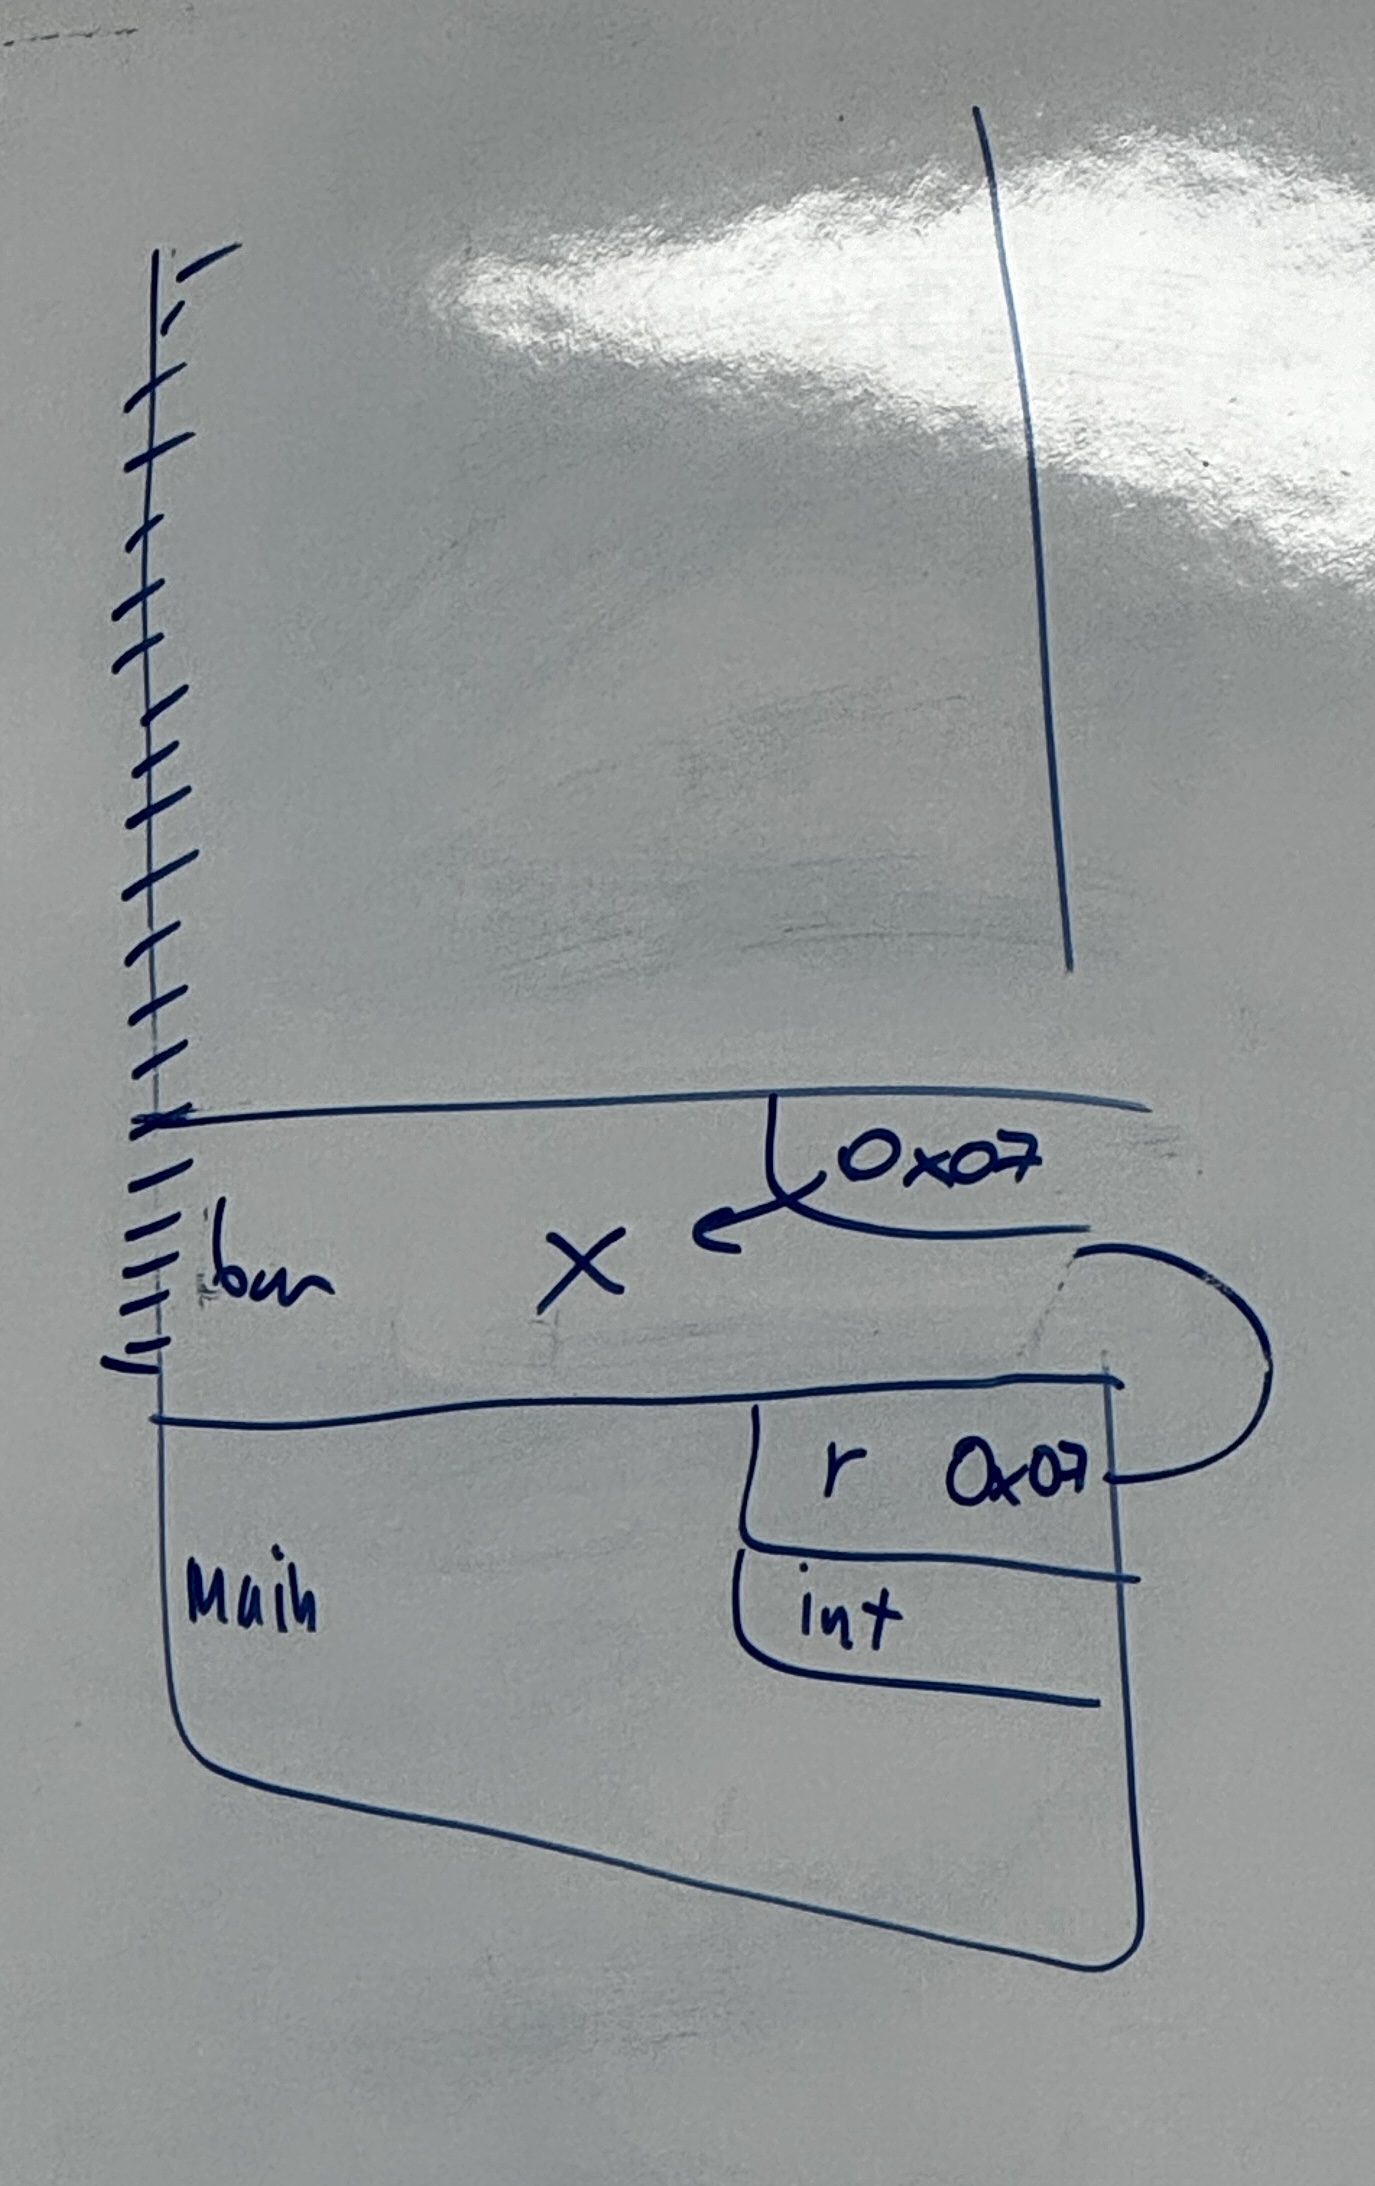 0x07
bar X
r 0x07
Main
int